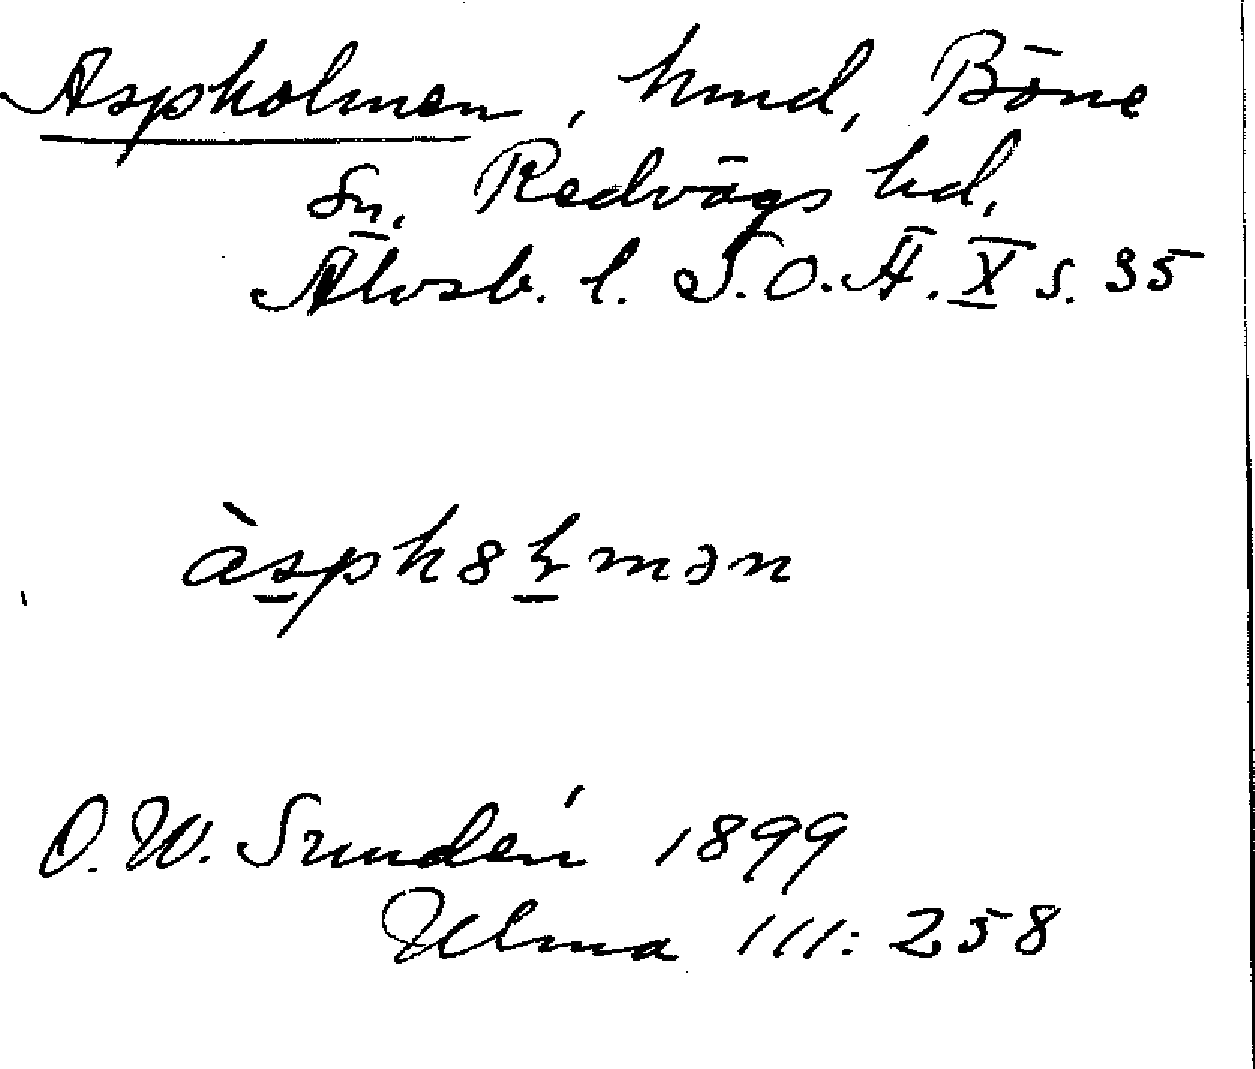 Aspholmen, hmd, Böne
Sn, Redvägs hd,
Älvsb. l. S.O.Ä. X s. 35
àsph8lmən
O.W. Sundén 1899
Ulma 111: 258